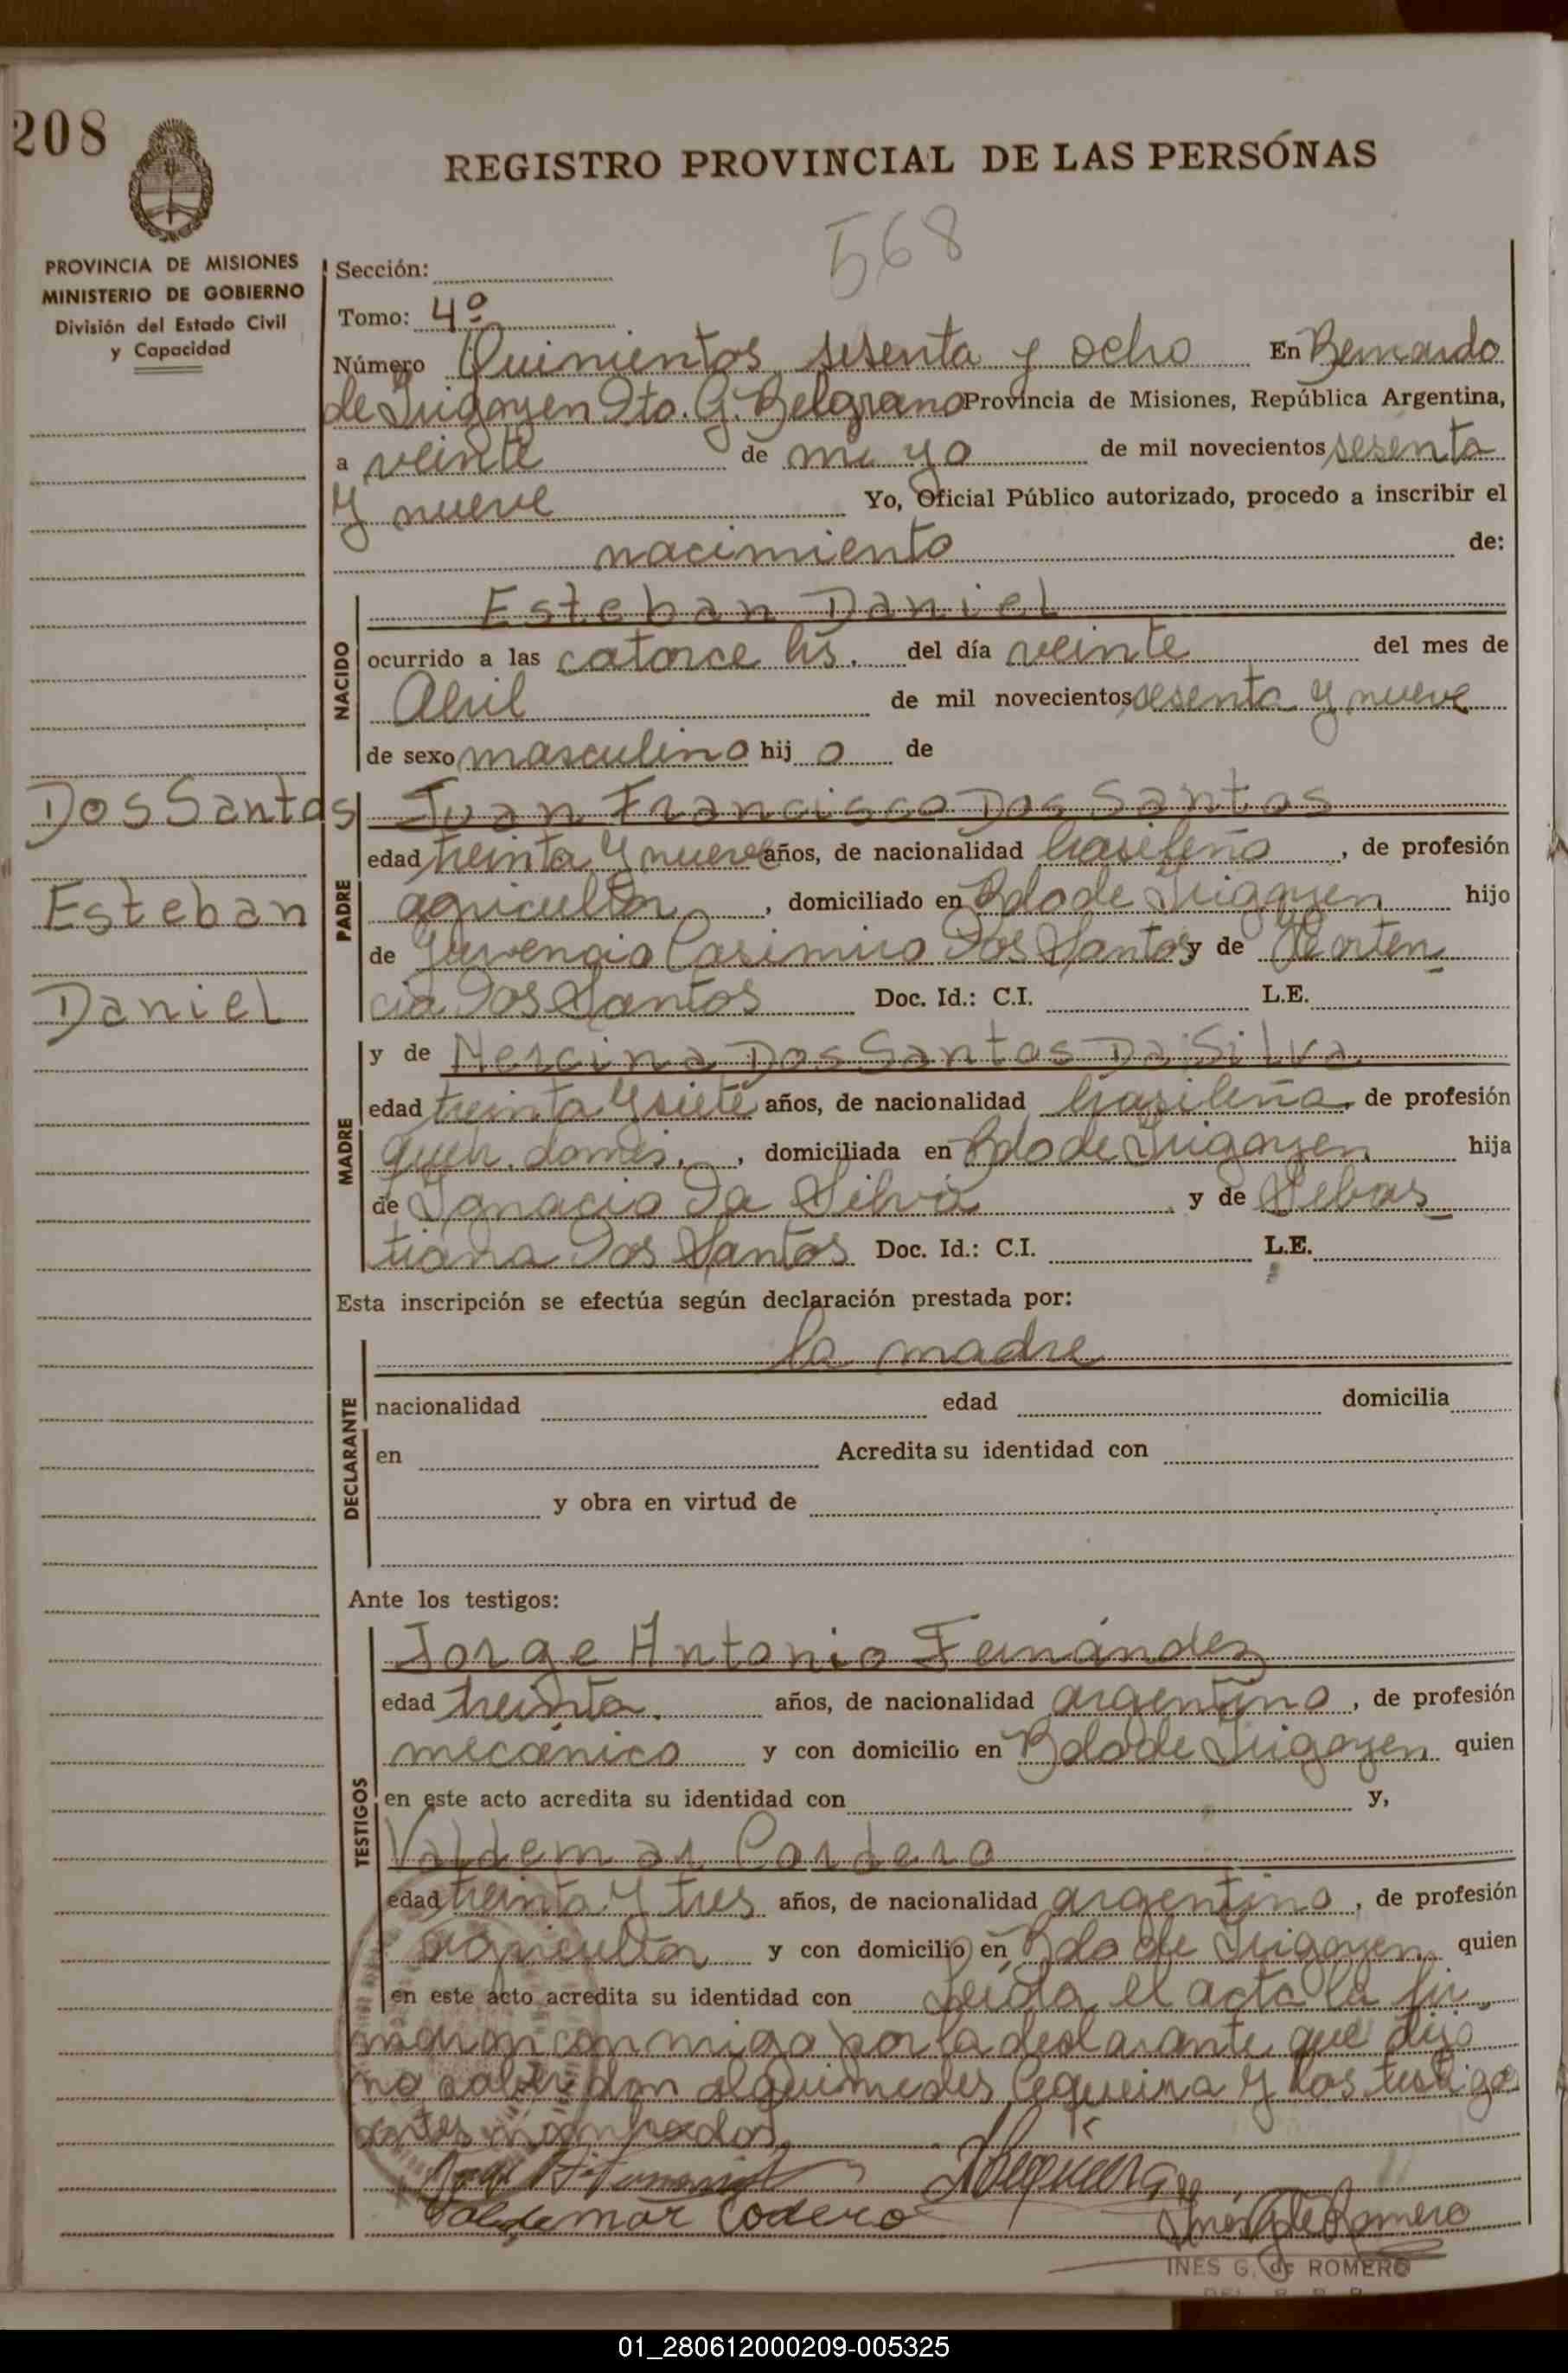 208
REGISTRO PROVINCIAL DE LAS PERSONAS
568
PROVINCIA DE MISIONES
MINISTERIO DE GOBIERNO
División del Estado Civil
y Capacidad
Sección:
Tomo: 4º
Número Quinientos sesenta y ocho En Bernardo
de Irigoyen Dto. G. Belgrano Provincia de Misiones, República Argentina,
a veinte de mayo de mil novecientos sesenta
y nueve Yo, Oficial Público autorizado, procedo a inscribir el
nacimiento de:
NACIDO
Esteban Daniel
ocurrido a las catorce hs. del día veinte del mes de
Abril de mil novecientos sesenta y nueve
de sexo masculino hij o de
Dos Santos
Esteban
Daniel
PADRE
Juan Francisco Dos Santos
edad treinta y nueve años, de nacionalidad brasileño, de profesión
agricultor, domiciliado en Bdo de Irigoyen hijo
de Juvencio Casimiro Dos Santos y de Horten
cia Dos Santos Doc. Id.: C.I. L.E.
MADRE
y de Nercina Dos Santos Da Silva
edad treinta y siete años, de nacionalidad brasileña, de profesión
queh. domés., domiciliada en Bdo de Irigoyen hija
de Ignacio Da Silva y de Sebas
tiana Dos Santos Doc. Id.: C.I. L.E.
Esta inscripción se efectúa según declaración prestada por:
DECLARANTE
la madre
nacionalidad edad domicilia
en Acredita su identidad con
y obra en virtud de
Ante los testigos:
TESTIGOS
Jorge Antonio Fernández
edad treinta. años, de nacionalidad argentino, de profesión
mecánico y con domicilio en Bdo de Irigoyen quien
en este acto acredita su identidad con y,
Valdemar Cordero
edad treinta y tres años, de nacionalidad argentino, de profesión
agricultor y con domicilio en Bdo de Irigoyen quien
en este acto acredita su identidad con Leída el acta la fir
maron conmigo por la declarante que dijo
no saber don alquimedes Cequeira y los testigos
antes nombrados
Valdemar Codero
Ines G de Romero
INES G. de ROMERO
01_280612000209-005325